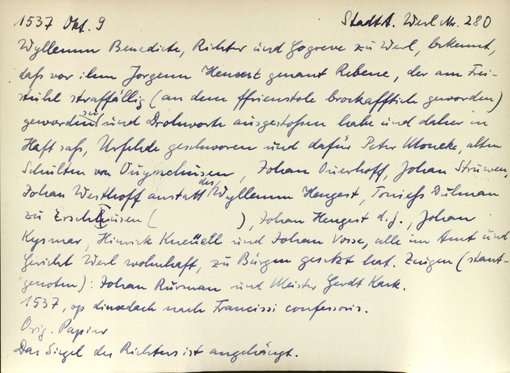 1537 Okt. 9 Stadt A. Werl Nr. 280
Wyllemm Benedicte, Richter und Gogreve zu Werl, bekennt,
daß vor ihm Jorgenn Hengest genant Rebene, der am Frei-
stuhl straffällig (an dem ffrienstole brockafftich geworden)
geworden sei und Drohworte ausgestoßen habe und daher in
Haft saß, Urfehde geschworen und dafür Peter Moneke, alten
Schulten von, Johan Ouerhoff, Johan Struwen,
Johan Westhoff anstatt des Wyllemm Hengest, Tonießs Dulman
zu ( ), Johan Hengest d. j., Johan
Kysmar, Hinrick Kneuell und Johan Vosse, alle im Amt und
Gericht Werl wohnhaft, zu Bürgen gesetzt hat. Zeugen (stant-
genoten): Johan Rurman und Meister Gerdt Kark.
1537, op dinxdach nach Francisci confessoris.
Orig. Papier
Das Siegel des Richters ist angehängt.